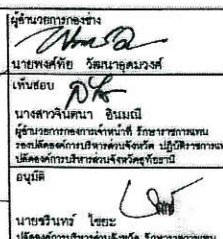 ผู้อำนวยการกองช่าง
นายพงศ์ทัย วัฒนาอุดมวงศ์
เห็นชอบ
นางสาวจินตนา อินมณี
ผู้อำนวยการกองการเจ้าหน้าที่ รักษาราชการแทน
รองปลัดองค์การบริหารส่วนจังหวัด ปฏิบัติราชการแทน
ปลัดองค์การบริหารส่วนจังหวัดอุทัยธานี
อนุมัติ
นายชรินทร์ ไชยะ
ปลัดองค์การบริหารส่วนจังหวัด รักษาราชการแทน